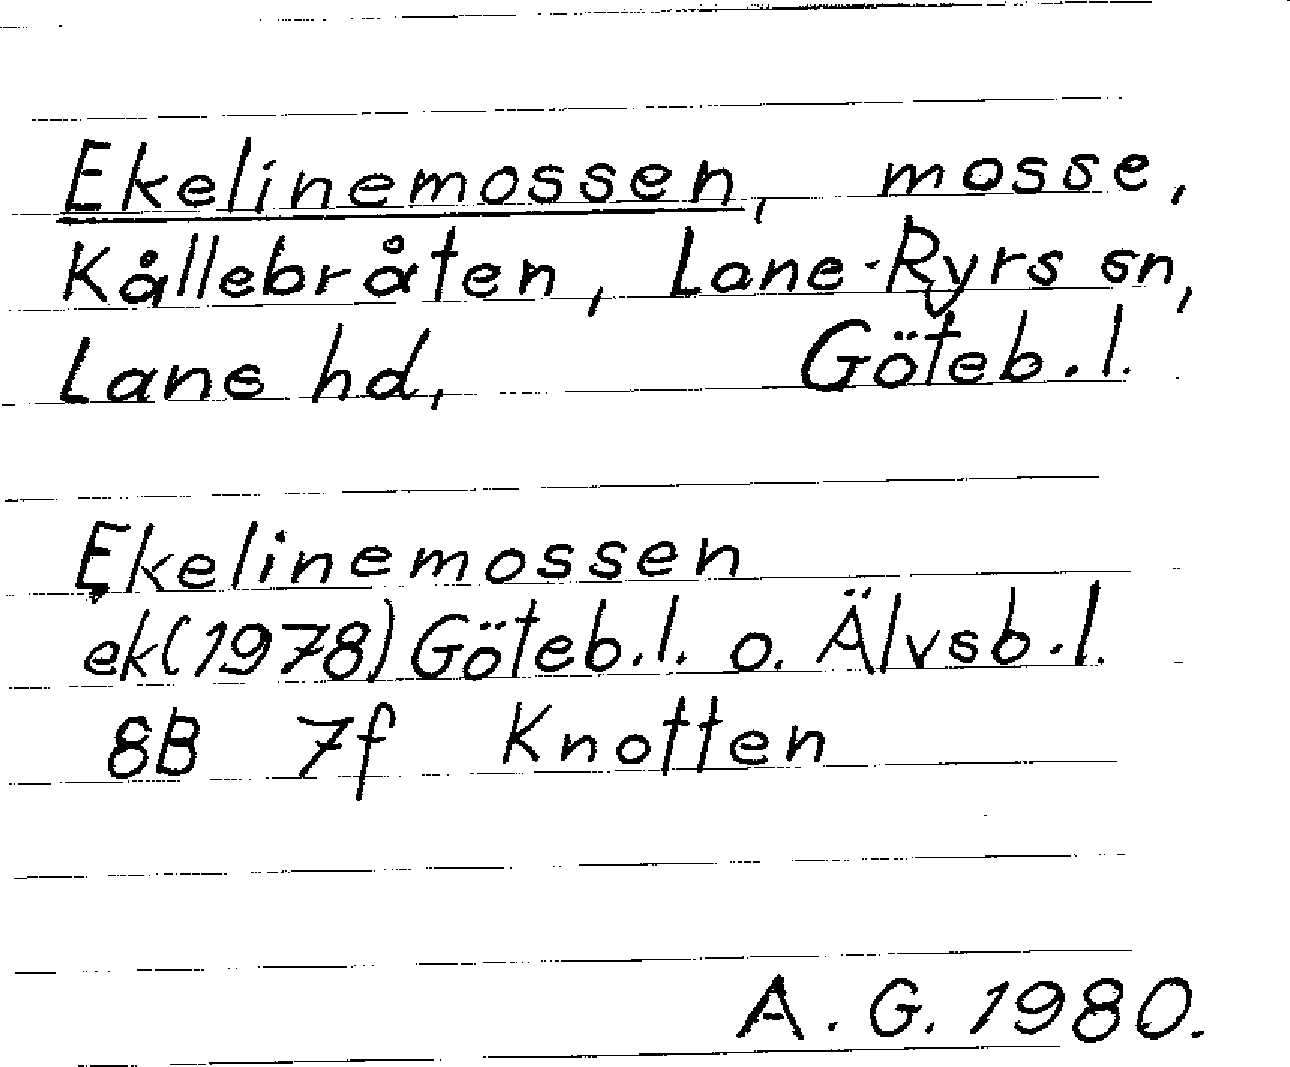 Ekelinemossen, mosse,
Kållebråten, Lane-Ryrs sn,
Lane hd, Göteb.l.
Ekelinemossen
ek(1978) Göteb.l. o. Älvsb.l.
8B 7f Knotten
A. G. 1980.